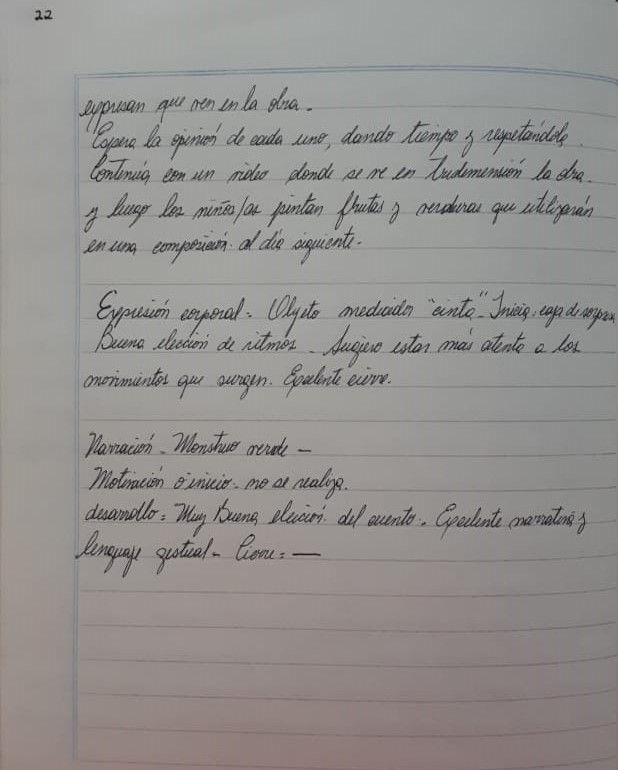 22
expresan que ven en la obra.
Espera la opinión de cada uno, dando tiempo y respetándolo.
Continúa con un video donde se ve en tridimensión la obra.
y luego los niños/as pintan frutas y verduras que utilizarán
en una composición al día siguiente.
Expresión corporal - Objeto mediador "cinta" - Inicia: caja de sorpresa
Buena elección de ritmos - Sugiero estar más atenta a los
movimientos que surgen. Excelente cierre.
Narración - Monstruo verde -
Motivación o inicio - no se realiza.
desarrollo = Muy Buena elección del cuento. Excelente narrativa y
lenguaje gestual - Cierre = —